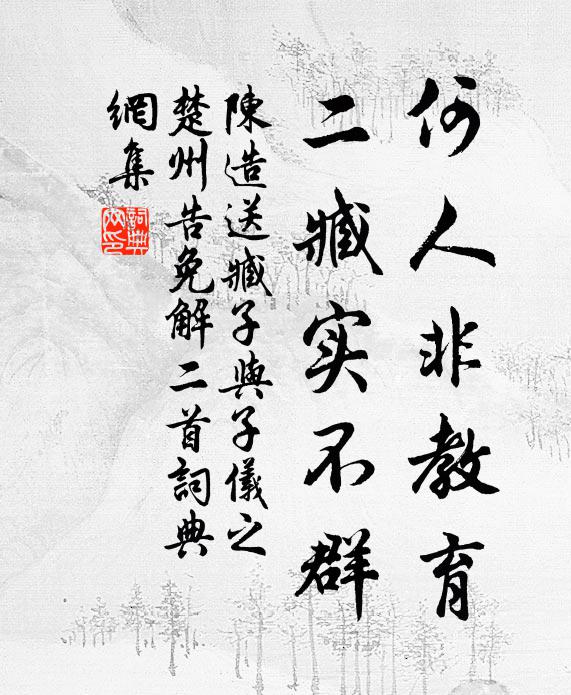 何人非教育
二臧实不群
陳造送臧子與子儀之
楚州告免解二首詞典
網集
詞典
网印